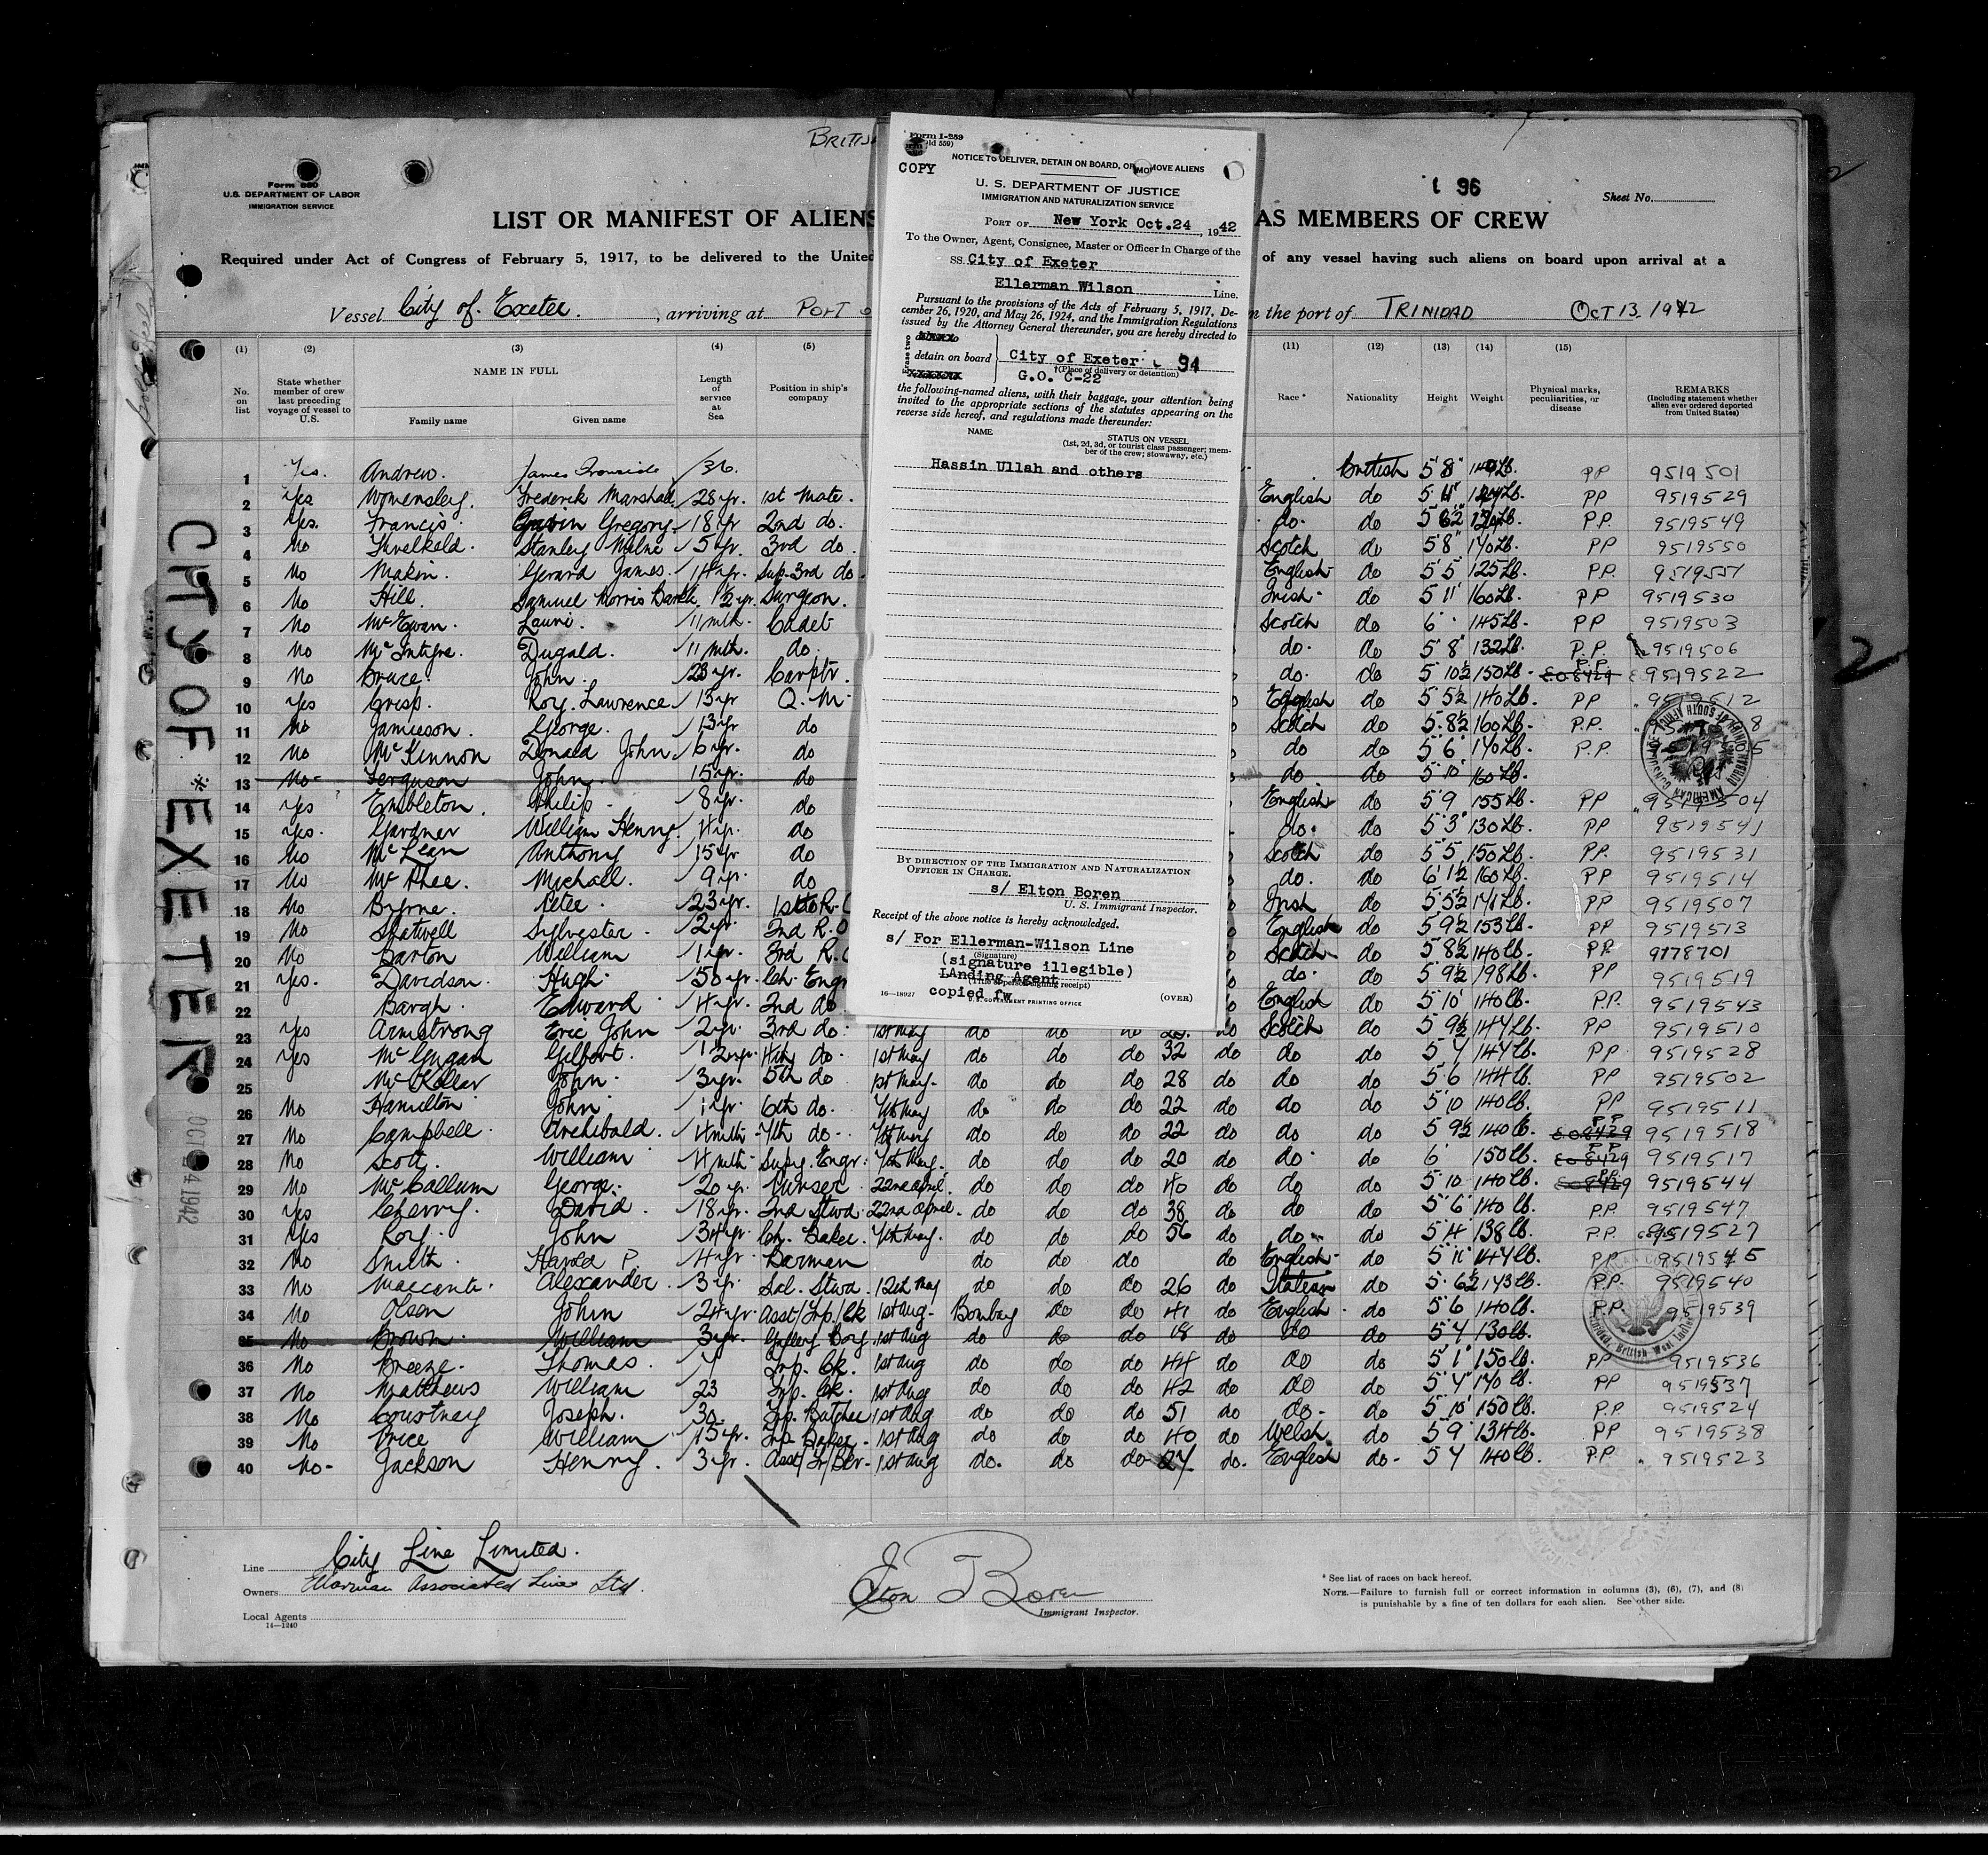 BRITISH
Form 680
U.S. DEPARTMENT OF LABOR
IMMIGRATION SERVICE
96
Sheet No.
LIST OR MANIFEST OF ALIENS AS MEMBERS OF CREW
Required under Act of Congress of February 5, 1917, to be delivered to the United of any vessel having such aliens on board upon arrival at a
Vessel City of Exeter. , arriving at PORT the port of TRINIDAD OCT 13 1942
(1) (2) (3) (4) (5) (11) (12) (13) (14) (15)
No. on list
State whether member of crew last preceding voyage of vessel to U.S.
NAME IN FULL
Family name Given name
Length of service at Sea
Position in ship's company
Race *
Nationality
Height
Weight
Physical marks, peculiarities, or disease
REMARKS
(Including statement whether alien ever ordered deported from United States)
1 Yes. Andrew. James Ironside 36. British 5 8" 140Lb. PP 9519501
2 Yes Womersley. Frederik Marshall 28yr. 1st Mate. English do PP 9519529
3 Yes. Francis. Gavin Gregory 18yr 2nd do. do. do 5 6½ P.P. 9519549
4 No Threlkeld. Stanley Milne 5yr. 3rd do. Scotch do 5'8" 140Lb. PP 9519550
5 No Makin. Gerard James. 14yr. Sup. 3rd do. English do 5'5 125Lb. PP. 9519551
6 No Hill. Samuel Morris 1½yr. Surgeon. Irish do 5 11' 160Lb. PP 9519530
7 No McEwan. Laurie. 11mth. Cadet Scotch do 6' 145Lb. PP 9519503
8 No McIntyre. Dugald. 11mth. do. do. do 5 8" 132Lb. P.P. 9519506
9 No Bruce. John. 23yr. Carptr. do. do 5 10½ 150Lb P.P. 9519522
10 Yes Crisp. Roy. Lawrence 13yr Q.M. English do 5 5½ 140Lb. PP 9519512
11 No Jamieson. George. 13yr do Scotch do 5.8½ 160Lb. P.P. 8
12 No McKinnon Donald John 6yr. do do do 5'6" 140Lb. P.P. 5
13 No Ferguson John 15yr. do do. do 5'10" 160Lb.
14 Yes Embleton. Philip 8yr. do English do 5'9 155Lb. PP 04
15 Yes. Gardner William Henry. 4yr. do do. do 5'3" 130Lb. PP 9519541
16 No McLean Anthony 15yr do Scotch do 5'5 150Lb. PP. 9519531
17 No McPhee. Michael. 9yr. do do. do 6'1½ 160Lb. PP 9519514
18 No Byrne. Peter. 23yr. 1st R. Irish do 5'5½ 141Lb. PP 9519507
19 No Shatwell Sylvester. 2yr. 2nd R.O English do 5 9½ 153Lb. PP 9519513
20 No Barton William 1yr. 3rd R. Scotch do 5 8½ 140Lb. P.P. 9778701
21 Yes. Davidson. Hugh 50yr. Ch. Engr do. do 5'9½ 198Lb. PP 9519519
22 Bargh. Edward 4yr. 2nd do English do 5'10' 140lb. P.P. 9519543
23 Yes Armstrong Eric John 2yr. 3rd do. 1st May do do do do Scotch do 5 9½ 147Lb. PP 9519510
24 Yes McGugan Gilbert. 4th do. 1st May do do do 32 do do do 5 7 147lb. PP 9519528
25 McKellar John. 3yr. 5th do 1st May. do do do 28 do do do 5'6 144lb. PP 9519502
26 No Hamilton John 1yr. 6th do. 7th May do do do 22 do do do 5'10 140lb. PP 9519511
27 No Campbell. Archibald. 4mth 7th do. 7th May do do do 22 do do do 5 9½ 140lb. P.P. 9519518
28 No Scott. William 4mth Supy. Engr. 7th May. do do do 20 do do do 6' 150lb. PP 9519517
29 No McCallum George. 20yr. Purser 22nd April. do do do 40 do do do 5'10 140lb. PP 9519544
30 Yes Cherry. David. 18yr. 2nd Stwd. 22nd April. do do do 38 do do do 5'6" 140 lb. P.P. 9519547
31 Yes Roy. John 34yr. Ch. Baker. 7th May. do do do 56 do do do 5'4" 138lb. P.P. 9519527
32 No Smith. Harold P. 4yr Barman do do do do English do 5'11' 147lb. P.P. 9519545
33 No Maccante. Alexander. 3yr. Sal. Stwd. 12th May do do do 26 do Italian do 5. 6½ 143lb. P.P. 9519540
34 No Olson John 24yr. Asst/Trp/Ck 1st Aug. Bombay do do 41 do English. do 5'6 140lb. P.P. 9519539
35 No Brown. William 3yr. Galley Boy. 1st Aug do do do 18 do do do 5 7 130lb.
36 No Breeze. Thomas. 7 Trp. Ck. 1st Aug do do do 44 do do do 5'1" 150lb. PP 9519536
37 No Matthews William 23 Trp. Ck. 1st Aug do do do 42 do do do 5'4" 170lb. PP 9519537
38 No Courtney Joseph. 30 Trp. Butcher 1st Aug do do do 51 do do do 5'10' 150lb. P.P 9519524
39 No Price William 15yr. Trp. Baker. 1st Aug do do do 40 do Welsh. do 5 9' 134lb. PP 9519538
40 No. Jackson Henry. 3yr. Asst/Tr/Bkr. 1st Aug do. do do 27 do. English do. 5 7 140lb. P.P. 9519523
CITY OF * EXETER
OCT 24 1942
Form I-259
(Old 559)
COPY
NOTICE TO DELIVER, DETAIN ON BOARD, OR REMOVE ALIENS
U. S. DEPARTMENT OF JUSTICE
IMMIGRATION AND NATURALIZATION SERVICE
PORT OF New York Oct.24, 1942
To the Owner, Agent, Consignee, Master or Officer in Charge of the
SS. City of Exeter
Ellerman Wilson Line.
Pursuant to the provisions of the Acts of February 5, 1917, De-
cember 26, 1920, and May 26, 1924, and the Immigration Regulations
issued by the Attorney General thereunder, you are hereby directed to
Erase two
detain on board City of Exeter 94
†(Place of delivery or detention)
G.O. C-22
the following-named aliens, with their baggage, your attention being
invited to the appropriate sections of the statutes appearing on the
reverse side hereof, and regulations made thereunder:
NAME STATUS ON VESSEL
(1st, 2d, 3d, or tourist class passenger; mem-
ber of the crew; stowaway, etc.)
Hassin Ullah and others
BY DIRECTION OF THE IMMIGRATION AND NATURALIZATION
OFFICER IN CHARGE.
s/ Elton Boren
U. S. Immigrant Inspector.
Receipt of the above notice is hereby acknowledged.
s/ For Ellerman-Wilson Line
(Signature)
(signature illegible)
LAnding Agent
(Title of person signing receipt)
copied fw
16—18927 U.S. GOVERNMENT PRINTING OFFICE (OVER)
Line City Line Limited.
Owners Ellerman Associated Lines Ltd.
Local Agents
14—1240
Elton Boren
Immigrant Inspector.
* See list of races on back hereof.
NOTE.—Failure to furnish full or correct information in columns (3), (6), (7), and (8)
is punishable by a fine of ten dollars for each alien. See other side.